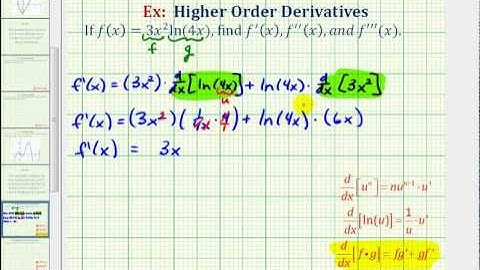 Ex: Higher Order Derivatives
If f(x) = 3x² ln(4x), find f'(x), f''(x), and f'''(x).
f g
f'(x) = (3x²) · d/dx [ln(4x)] + ln(4x) · d/dx [3x²]
u
f'(x) = (3x²)(1/4x · 4/1) + ln(4x) · (6x)
f'(x) = 3x
d/dx [uⁿ] = nuⁿ⁻¹ · u'
d/dx [ln(u)] = 1/u · u'
d/dx [f · g] = fg' + gf'